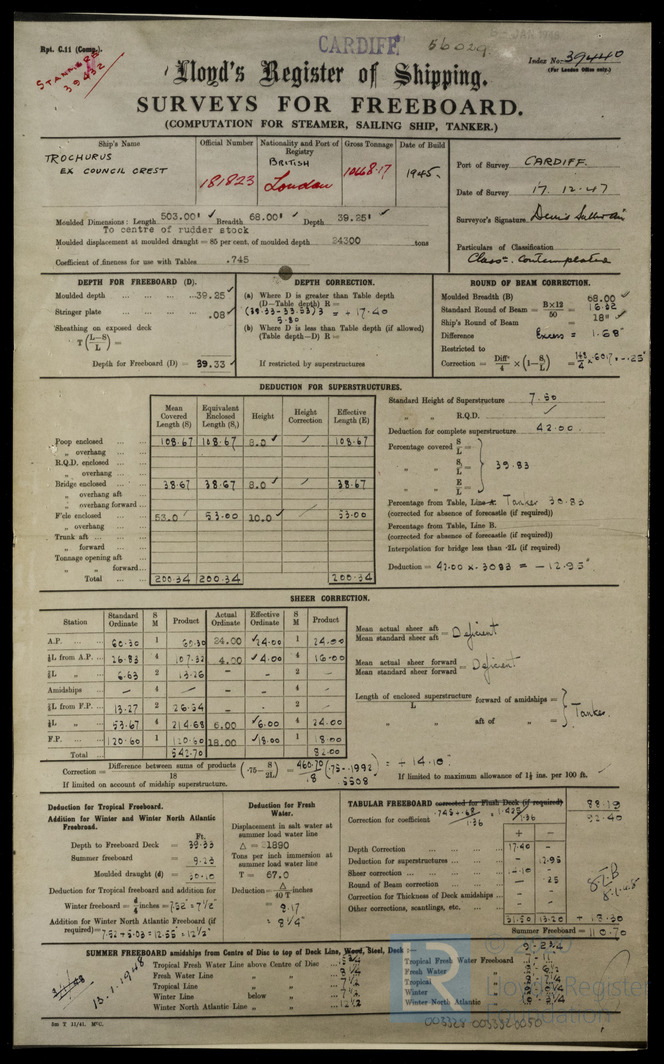 Rpt. C.11 (Comp.).
CARDIFF
56029
Index No. 39440
(For London Office only.)
39432
Lloyd's Register of Shipping.
SURVEYS FOR FREEBOARD.
(COMPUTATION FOR STEAMER, SAILING SHIP, TANKER.)
Ship's Name Official Number Nationality and Port of Registry Gross Tonnage Date of Build
TROCHURUS
EX COUNCIL CREST
181823
BRITISH
London
1945.
Port of Survey CARDIFF.
Date of Survey 17. 12. 47
Surveyor's Signature
Particulars of Classification
Class: Contemplated
Moulded Dimensions: Length 503.00' Breadth 68.00' Depth 39.25'
To centre of rudder stock
Moulded displacement at moulded draught = 85 per cent. of moulded depth 24300 tons
Coefficient of fineness for use with Tables .745
DEPTH FOR FREEBOARD (D).
Moulded depth ... 39.25
Stringer plate ... .08
Sheathing on exposed deck
T (L-S/L) =
Depth for Freeboard (D) = 39.33
DEPTH CORRECTION.
(a) Where D is greater than Table depth
(D—Table depth) R =
(39.33-33.53)3 = + 17.40
5.80
(b) Where D is less than Table depth (if allowed)
(Table depth—D) R =
If restricted by superstructures
ROUND OF BEAM CORRECTION.
Moulded Breadth (B) 68.00
Standard Round of Beam = B×12/50 = 16.32
Ship's Round of Beam = 18"
Difference Excess = 1.68"
Restricted to
Correction = Diff/4 × (1-S/L)
DEDUCTION FOR SUPERSTRUCTURES.
Mean Covered Length (S) Equivalent Enclosed Length (S₁) Height Height Correction Effective Length (E)
Poop enclosed ... 108.67 108.67 8.0 108.67
„ overhang ...
R.Q.D. enclosed ...
„ overhang ...
Bridge enclosed ... 38.67 38.67 8.0 38.67
„ overhang aft
„ overhang forward...
F'cle enclosed ... 53.0 53.00 10.0 53.00
„ overhang ...
Trunk aft ...
„ forward ...
Tonnage opening aft
„ „ forward...
Total ... 200.34 200.34 200.34
Standard Height of Superstructure 7.50
„ „ R.Q.D.
Deduction for complete superstructure 42.00
Percentage covered S/L =
„ „ S₁/L = 39.83
„ „ E/L =
Percentage from Table, Line A Tanker 30.83
(corrected for absence of forecastle (if required))
Percentage from Table, Line B.
(corrected for absence of forecastle (if required))
Interpolation for bridge less than ·2L (if required)
Deduction = 42.00 × .3083 = - 12.95"
SHEER CORRECTION.
Station Standard Ordinate S M Product Actual Ordinate Effective Ordinate S M Product
A.P. ... 60.30 1 60.30 24.00 24.00 1 24.00
⅙L from A.P. ... 26.83 4 107.32 4.00 4.00 4 16.00
⅓L „ 6.63 2 13.26 - - 2 -
Amidships ... - 4 - - - 4 -
⅓L from F.P. ... 13.27 2 26.54 - - 2 -
⅙L „ 53.67 4 214.68 6.00 6.00 4 24.00
F.P. ... 120.60 1 120.60 18.00 18.00 1 18.00
Total ... 542.70 82.00
Mean actual sheer aft / Mean standard sheer aft = Deficient
Mean actual sheer forward / Mean standard sheer forward = Deficient
Length of enclosed superstructure / L forward of amidships =
„ „ aft of „ = Tanker.
Correction = Difference between sums of products / 18 (·75 - S/2L) = 460.70/18 (.75-.1992) = + 14.10"
.5508
If limited on account of midship superstructure. If limited to maximum allowance of 1½ ins. per 100 ft.
Deduction for Tropical Freeboard.
Addition for Winter and Winter North Atlantic Freeboard.
Ft.
Depth to Freeboard Deck = 39.33
Summer freeboard = 9.23
Moulded draught (d) = 30.10
Deduction for Tropical freeboard and addition for
Winter freeboard = d/4 inches = 7.52" = 7½"
Addition for Winter North Atlantic Freeboard (if required) = 7.52 + 5.03 = 12.55 = 12½"
Deduction for Fresh Water.
Displacement in salt water at summer load water line
Δ =
Tons per inch immersion at summer load water line
T = 67.0
Deduction = Δ/40 T inches
= 8.17
= 8¼"
TABULAR FREEBOARD corrected for Flush Deck (if required) 88.19
Correction for coefficient .745+.68/1.36 1.425/1.36 92.40
+ -
Depth Correction ... 17.40 -
Deduction for superstructures ... - 12.95
Sheer correction ... 14.10 -
Round of Beam correction ... - .25
Correction for Thickness of Deck amidships ... - -
Other corrections, scantlings, etc. ... - -
31.50 13.20 + 18.30
Summer Freeboard = 110.70
SUMMER FREEBOARD amidships from Centre of Disc to top of Deck Line, Wood, Steel, Deck :— 9'-2¾"
Tropical Fresh Water Line above Centre of Disc ...
Fresh Water Line „ „ ... 8¼
Tropical Line „ „ ... 7½
Winter Line below „ ... 7½
Winter North Atlantic Line „ „ ... 12½
Tropical Fresh Water Freeboard ...
Fresh Water „ ...
Tropical „ ...
Winter „ ...
Winter North Atlantic „ ...
13.1.1948
5m T 11/41. McC.
Lloyd's Register
Foundation
003328-003328-0050